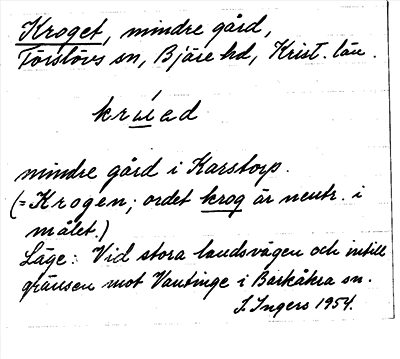 Kroget, mindre gård,
Förslövs sn, Bjäre hd, Krist. län.
mindre gård i Karstorp.
(= Krogen; ordet krog är neutr. i
målet.)
Läge: Vid stora landsvägen och intill
gränsen mot Vantinge i Barkåkra sn.
I. Ingers 1954.